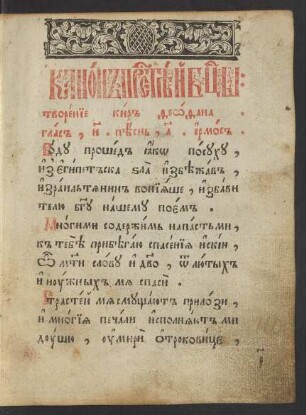 Канѡнъ престѣй бцы:
творенїе киръ ѳеѡѳана
гласъ, и҃. пѣснь, а҃. ірмосъ.
Воду прошедъ ꙗкѡ посуху,
изъ египетъска зла избѣжавъ,
израильтянинъ вопїяше, избави
телю бгу нашему поемъ.
Многими содержимь напастьми,
къ тебѣ прибѣгаю спасенїя искїи,
ѿ мти слову и дво, ѿ лютыхъ
и нужныхъ мя спаси.
Страстей мя смущаютъ прилози,
и многїя печали исполняютъ ми
душю, умири отроковице,